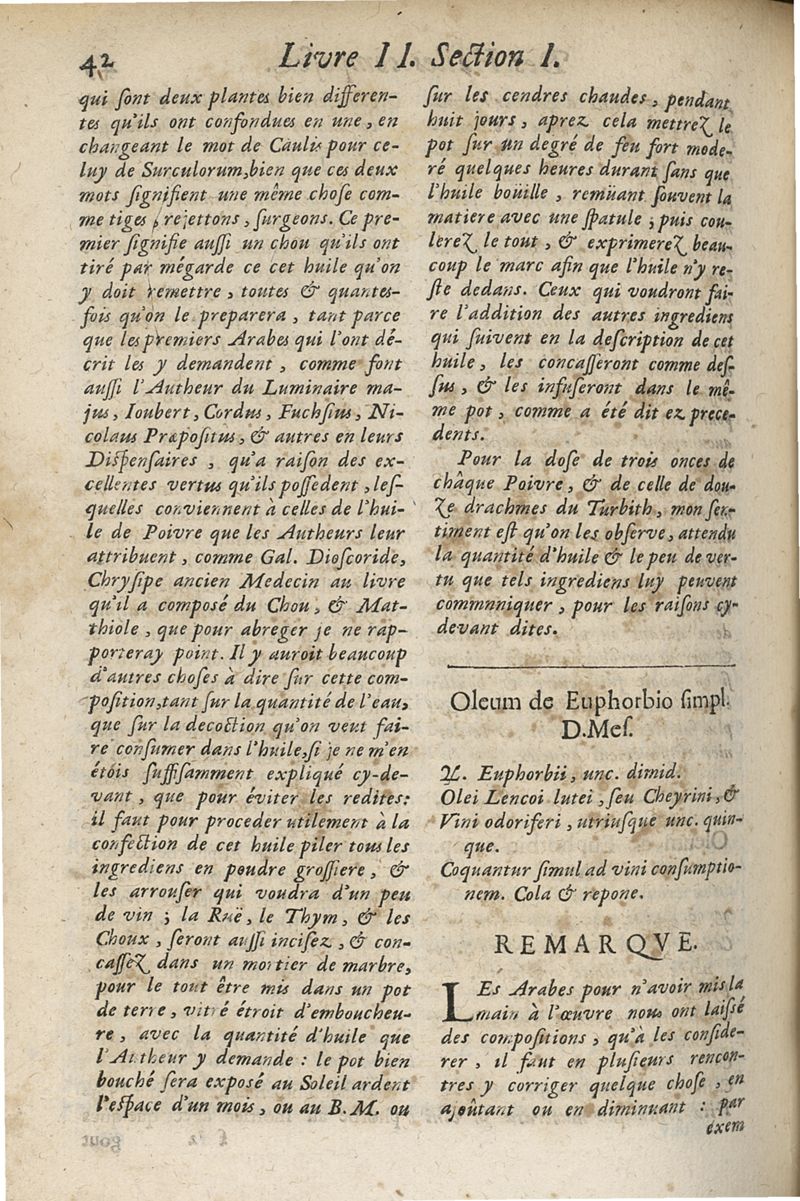 42 Livre II. Section I.
qui ſont deux plantes bien differen-
tes qu'ils ont confondues en une, en
changeant le mot de Caulis pour ce-
luy de Surculorum, bien que ces deux
mots ſignifient une même choſe com-
me tiges, rejettons, ſurgeons. Ce pre-
mier ſignifie auſſi un chou qu'ils ont
tiré par mégarde ce cet huile qu'on
y doit remettre, toutes & quantes-
fois qu'on le preparera, tant parce
que les premiers Arabes qui l'ont dé-
crit les y demandent, comme font
auſſi l'Autheur du Luminaire ma-
jus, Ioubert, Cordus, Fuchſius, Ni-
colaus Præpoſitus, & autres en leurs
Diſpenſaires, qu'a raiſon des ex-
cellentes vertus qu'ils poſſedent, leſ-
quelles conviennent à celles de l'hui-
le de Poivre que les Autheurs leur
attribuent, comme Gal. Dioſcoride,
Chryſipe ancien Medecin au livre
qu'il a compoſé du Chou, & Mat-
thiole, que pour abreger je ne rap-
porteray point. Il y auroit beaucoup
d'autres choſes à dire ſur cette com-
poſition, tant ſur la quantité de l'eau,
que ſur la decoction qu'on veut fai-
re conſumer dans l'huile, ſi je ne m'en
étois ſuffiſamment expliqué cy-de-
vant, que pour éviter les redites:
il faut pour proceder utilement à la
confection de cet huile piler tous les
ingrediens en poudre groſſiere, &
les arrouſer qui voudra d'un peu
de vin; la Ruë, le Thym, & les
Choux, ſeront auſſi inciſez, & con-
caſſeZ dans un mortier de marbre,
pour le tout être mis dans un pot
de terre, vitré étroit d'emboucheu-
re, avec la quantité d'huile que
l'Autheur y demande: le pot bien
bouché ſera expoſé au Soleil ardent
l'eſpace d'un mois, ou au B.M. ou
ſur les cendres chaudes, pendant
huit jours, aprez cela mettreZ le
pot ſur un degré de feu fort mode-
ré quelques heures durant ſans que
l'huile boüille, remüant ſouvent la
matiere avec une ſpatule; puis cou-
lereZ le tout, & exprimereZ beau-
coup le marc afin que l'huile n'y re-
ſte dedans. Ceux qui voudront fai-
re l'addition des autres ingrediens
qui ſuivent en la deſcription de cet
huile, les concaſſeront comme deſ-
ſus, & les infuſeront dans le mê-
me pot, comme a été dit ez prece-
dents.
Pour la doſe de trois onces de
châque Poivre, & de celle de dou-
Ze drachmes du Turbith, mon ſen-
timent eſt qu'on les obſerve, attendu
la quantité d'huile & le peu de ver-
tu que tels ingrediens luy peuvent
commnniquer, pour les raiſons cy-
devant dites.
Oleum de Euphorbio ſimpl.
D.Meſ.
℞. Euphorbii, unc. dimid.
Olei Lencoi lutei, ſeu Cheyrini, &
Vini odoriferi, utriuſque unc. quin-
que.
Coquantur ſimul ad vini conſumptio-
nem. Cola & repone.
REMARQVE.
LEs Arabes pour n'avoir mis la
main à l'œuvre nous ont laiſſé
des compoſitions, qu'à les conſide-
rer, il faut en pluſieurs rencon-
tres y corriger quelque choſe, en
ajoûtant ou en diminuant: par
exem